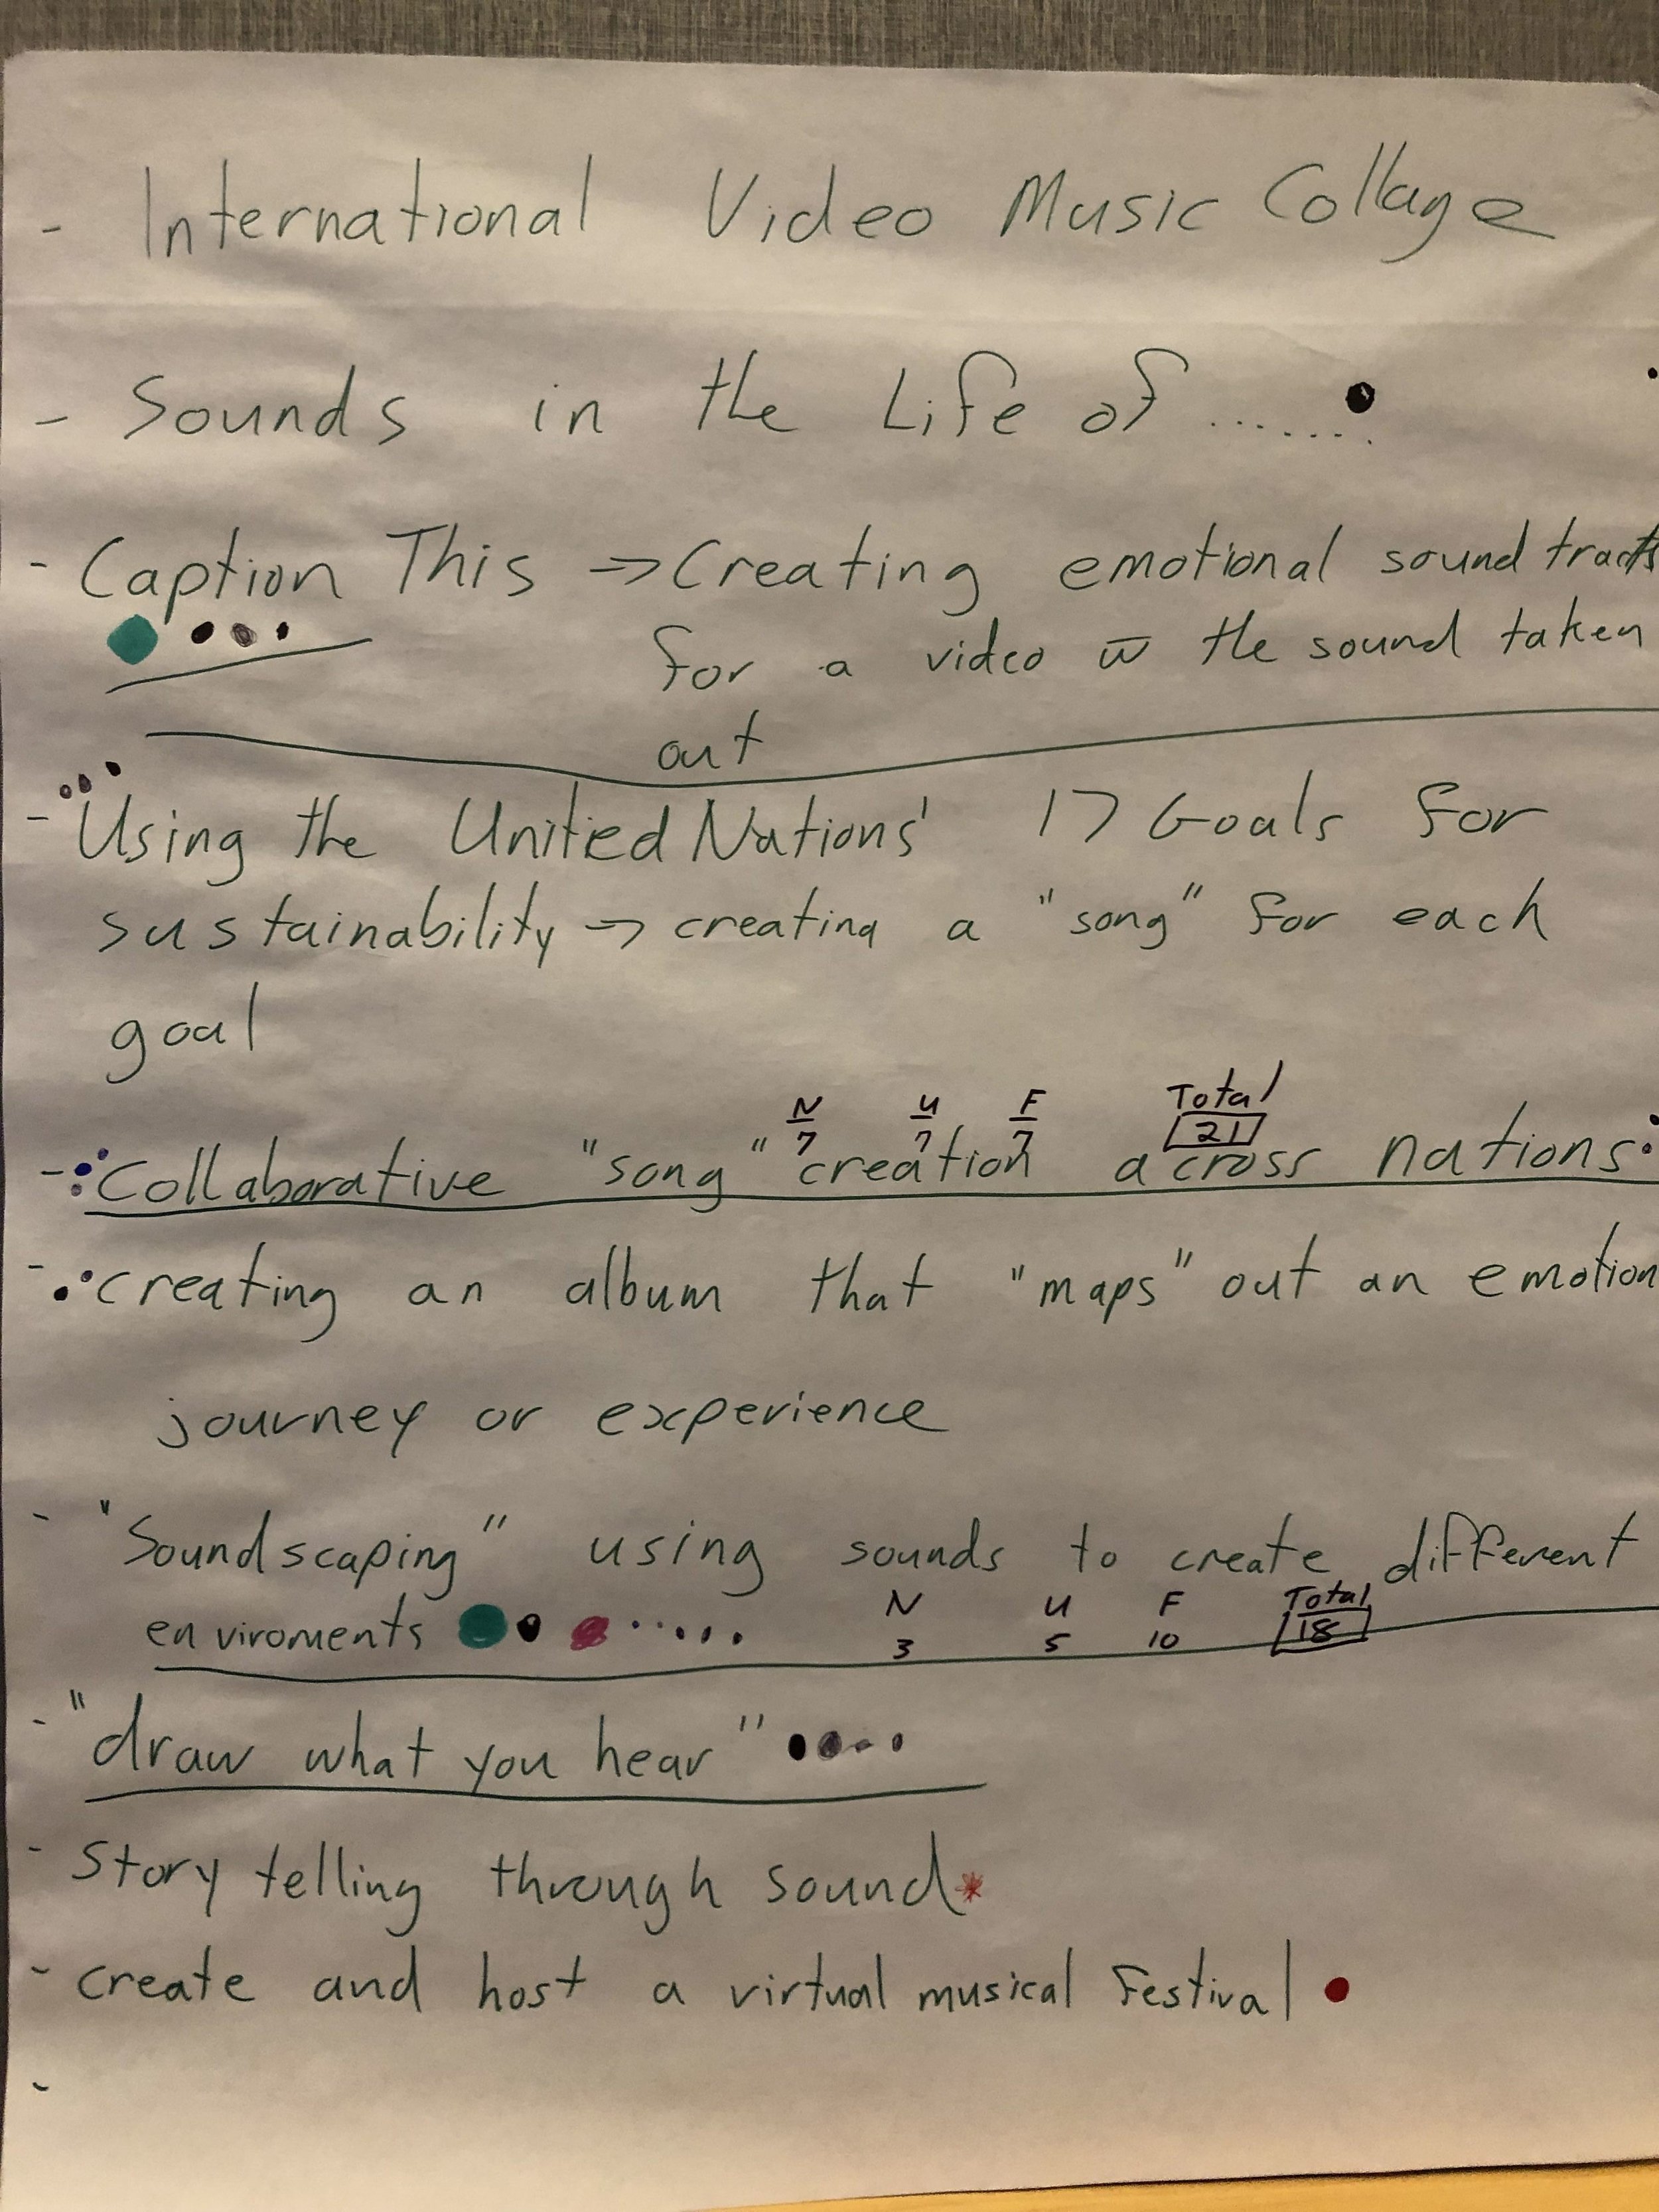 - International Video Music Collage
- Sounds in the Life of .......
- Caption This → Creating emotional soundtracks
for a video w̄ the sound taken
out
- Using the Unitied Nations' 17 Goals for
sustainability → creating a "song" for each
goal
N U F Total
7 7 7 21
- Collaborative "song" creation across nations
- creating an album that "maps" out an emotion
journey or experience
- "Soundscaping" using sounds to create different
enviroments N U F Total
3 5 10 18
- "draw what you hear"
- Story telling through sound*
- create and host a virtual musical Festival
-